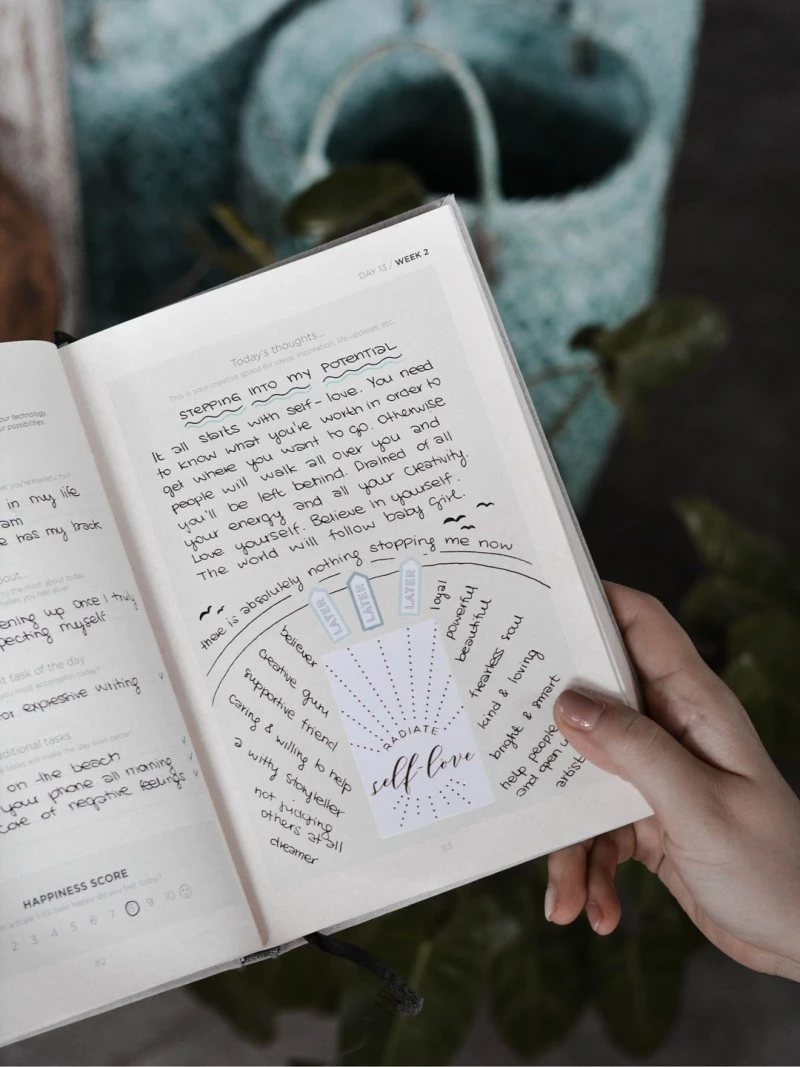 your technology.
your possibilities.
in my life
am
has my back
about...
ening up once I truly
pecting myself
nt task of the day
or expressive writing
dditional tasks
on the beach
your phone all morning
care of negative feelings
HAPPINESS SCORE
how happy do you feel today?
2 3 4 5 6 7 8 9 10
82
DAY 13 / WEEK 2
Today's thoughts...
This is your creative space for ideas, inspiration, life updates, etc.
STEPPING INTO MY POTENTIAL
It all starts with self-love. You need
to know what you're worth in order to
get where you want to go. Otherwise
people will walk all over you and
you'll be left behind. Drained of all
your energy and all your creativity.
Love yourself. Believe in yourself.
The world will follow baby girl.
there is absolutely nothing stopping me now
LATER
LATER
LATER
believer
creative guru
supportive friend
caring & willing to help
a witty storyteller
not judging
others at all
dreamer
RADIATE
self-love
loyal
powerful
beautiful
fearless soul
kind & loving
bright & smart
help people
and open
artist
83